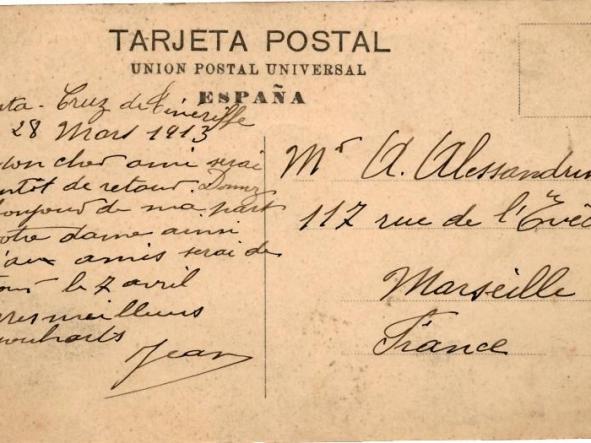 TARJETA POSTAL
UNION POSTAL UNIVERSAL
ESPAÑA
nta-Cruz de Tineriffe
28 Mars 1913
on cher ami serai
entôt de retour. Donnez
bonjour de ma part
otre dame ainsi
'aux amis serai de
tour le 7 avril
eres meilleurs
ouhaits
Jean
Mr A. Alessandrin
117 rue de l'Evêc
Marseille
France